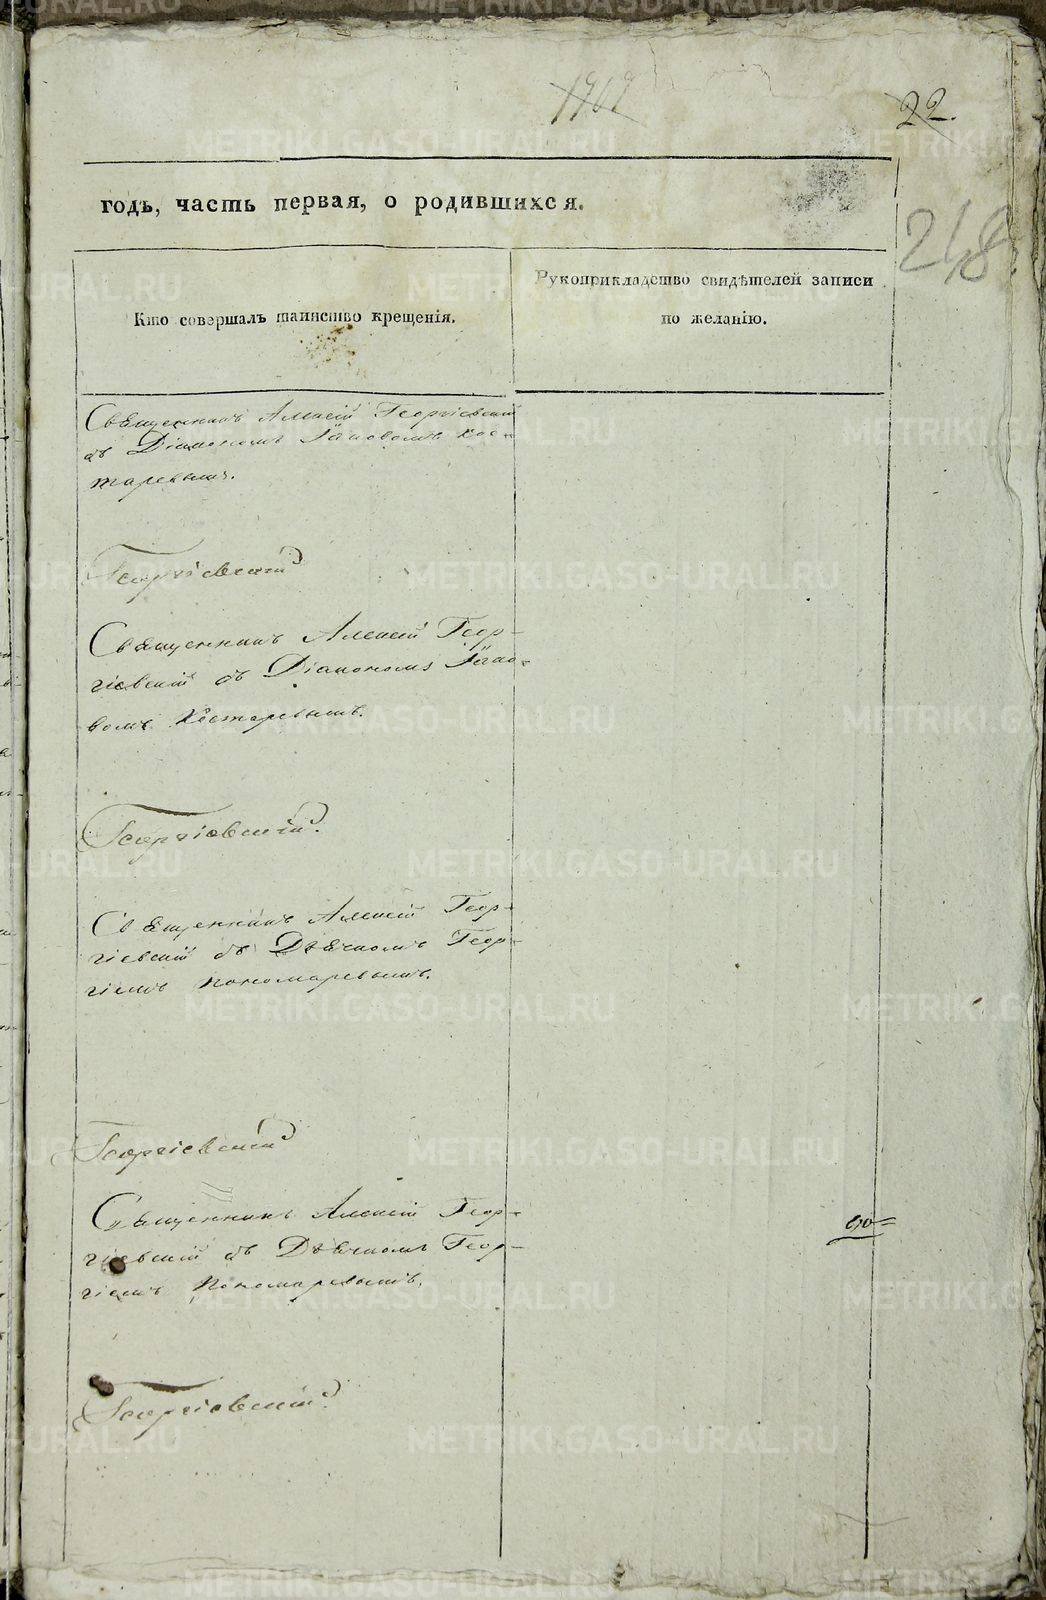 1969
22.
248
годъ, часть первая, о родившихся.
Кто совершалъ таинство крещенія.
Рукоприкладство свидѣтелей записи
по желанію.
Священникъ Алексій Георгіевскій
съ Діакономъ Іаковомъ Кос-
таревымъ.
Георгіевскій
Священникъ Алексій Геор-
гіевскій съ Діакономъ Іако-
вомъ Костаревымъ.
Георгіевскій.
Священникъ Алексій Геор-
гіевскій съ Дьячкомъ Геор-
гіемъ Пономаревымъ.
Георгіевскій
Священникъ Алексій Геор-
гіевскій съ Дьячкомъ Геор-
гіемъ Пономаревымъ.
Георгіевскій.
METRIKI.GASO-URAL.RU